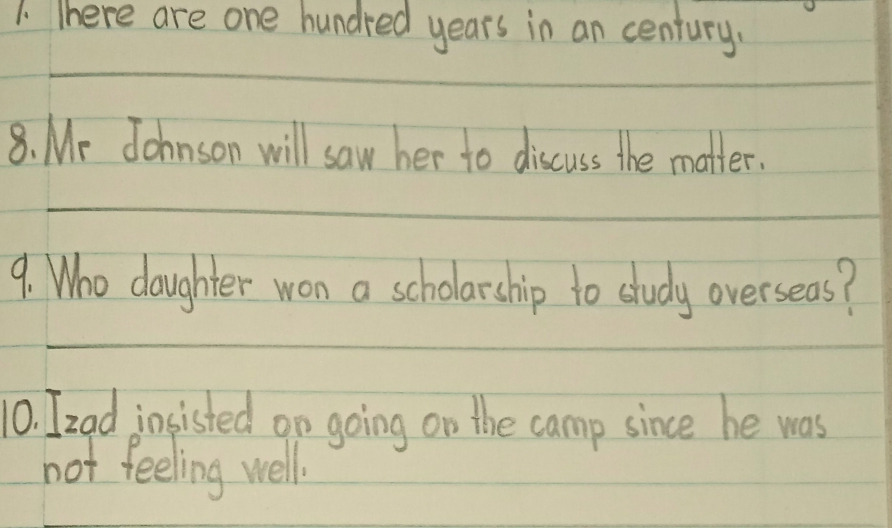 7. There are one hundred years in an century.
8. Mr Johnson will saw her to discuss the matter.
9. Who daughter won a scholarship to study overseas?
10. Izad insisted on going on the camp since he was
not feeling well.